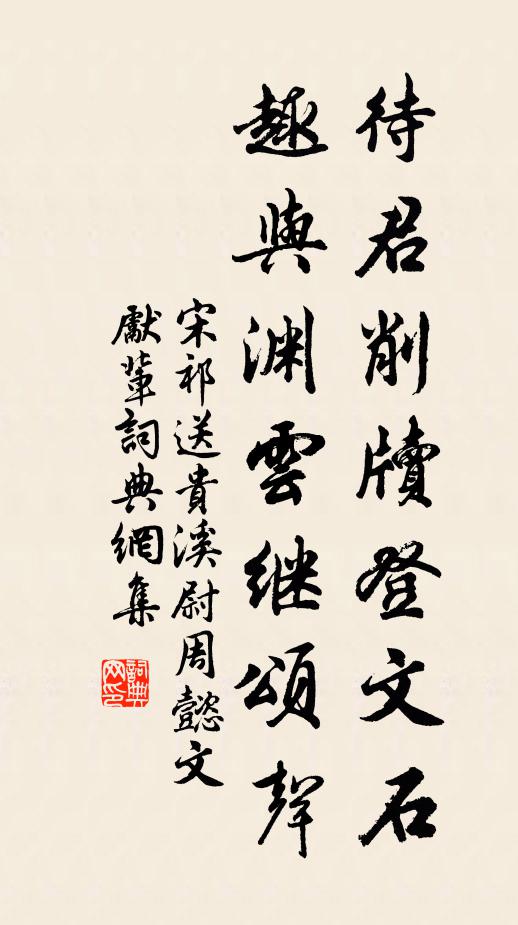 待君削牘登文石
趣與渊雲继頌聲
宋祁送貴溪尉周懿文
獻輩詞典網集
詞典网印